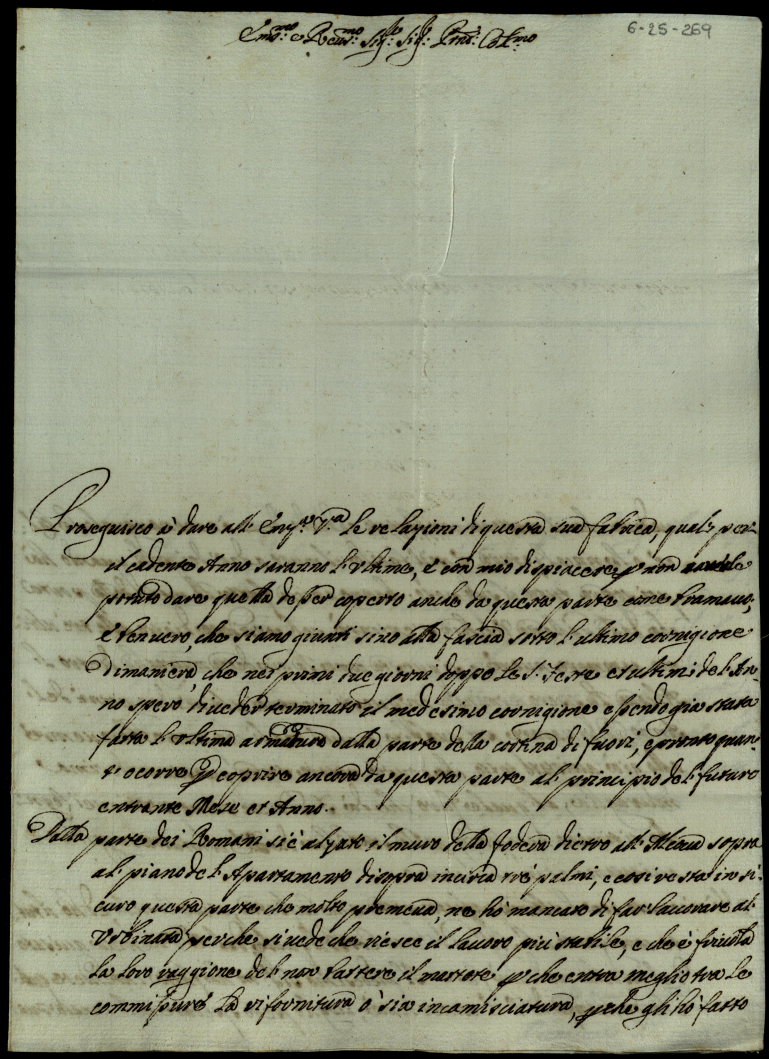 6-25-269
Em.mo e Reu.mo Sig.re Sig.re Prone Col.mo
Proseguisco à dare all' Em.za V.ra le relazioni di questa sua fabrica, quali per
il cadente Anno saranno l'vltime, è con mio dispiacere p non
potuto dare quella desser coperto anche da questa parte come bramauo,
è ben uero, che siamo giunti sino alla fascia sotto l'ultimo cornigione
dimaniera, che nei primi due giorni doppo le S. Feste et ultimi del An=
no spero di ueder terminato il medesimo cornigione essendo gia stata
fatta l'vltima armatura dalla parte della cortina di fuori, e portato quan=
to ocorre p coprire ancora da questa parte al principio del futuro
entrante Mese et Anno.
Dalla parte dei Romani si è alzato il muro della fodera dietro all' sopra
al piano del Apartamento di sopra incirca trè palmi, e cosi resta in si=
curo questa parte che molto premeua, ne hò mancato di far lauorare al
Vrbinata perche si uede che riesce il lauoro più stabile, e che è friuola
la loro raggione del non battere il martore p che entra meglio tra le
commissure la rifornitura ò sia incamisciatura, p che gli hò fatto